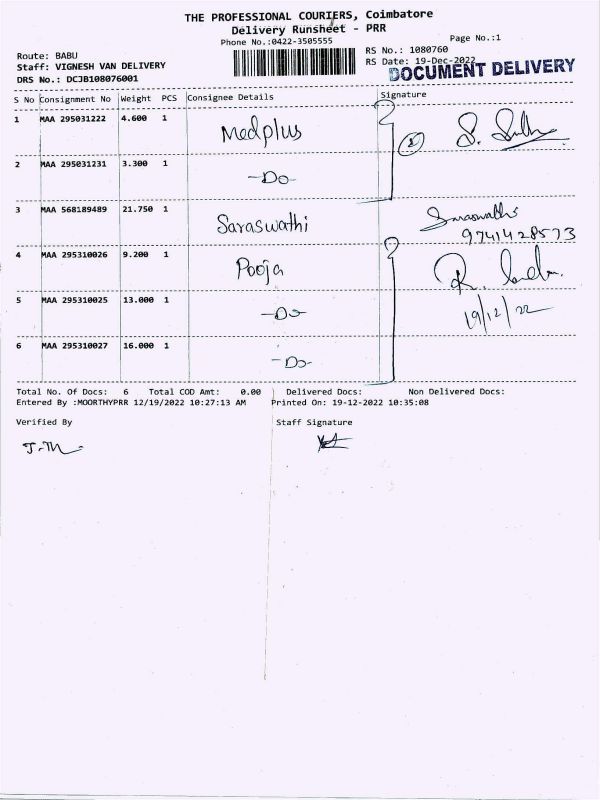 THE PROFESSIONAL COURIERS, Coimbatore
Delivery Runsheet - PRR
Phone No.:0422-3505555
Page No.:1
Route: BABU
RS No.: 1080760
Staff: VIGNESH VAN DELIVERY
RS Date: 19-Dec-2022
DRS No.: DCJB108076001
DOCUMENT DELIVERY
S No Consignment No Weight PCS Consignee Details Signature
1 MAA 295031222 4.600 1 Medplus
2 MAA 295031231 3.300 1 -Do-
3 MAA 568189489 21.750 1 Saraswathi Saraswathi
9741428573
4 MAA 295310026 9.200 1 Pooja
5 MAA 295310025 13.000 1 -Do- 19/12/22
6 MAA 295310027 16.000 1 -Do-
Total No. Of Docs: 6 Total COD Amt: 0.00 Delivered Docs: Non Delivered Docs:
Entered By :MOORTHYPRR 12/19/2022 10:27:13 AM Printed On: 19-12-2022 10:35:08
Verified By Staff Signature